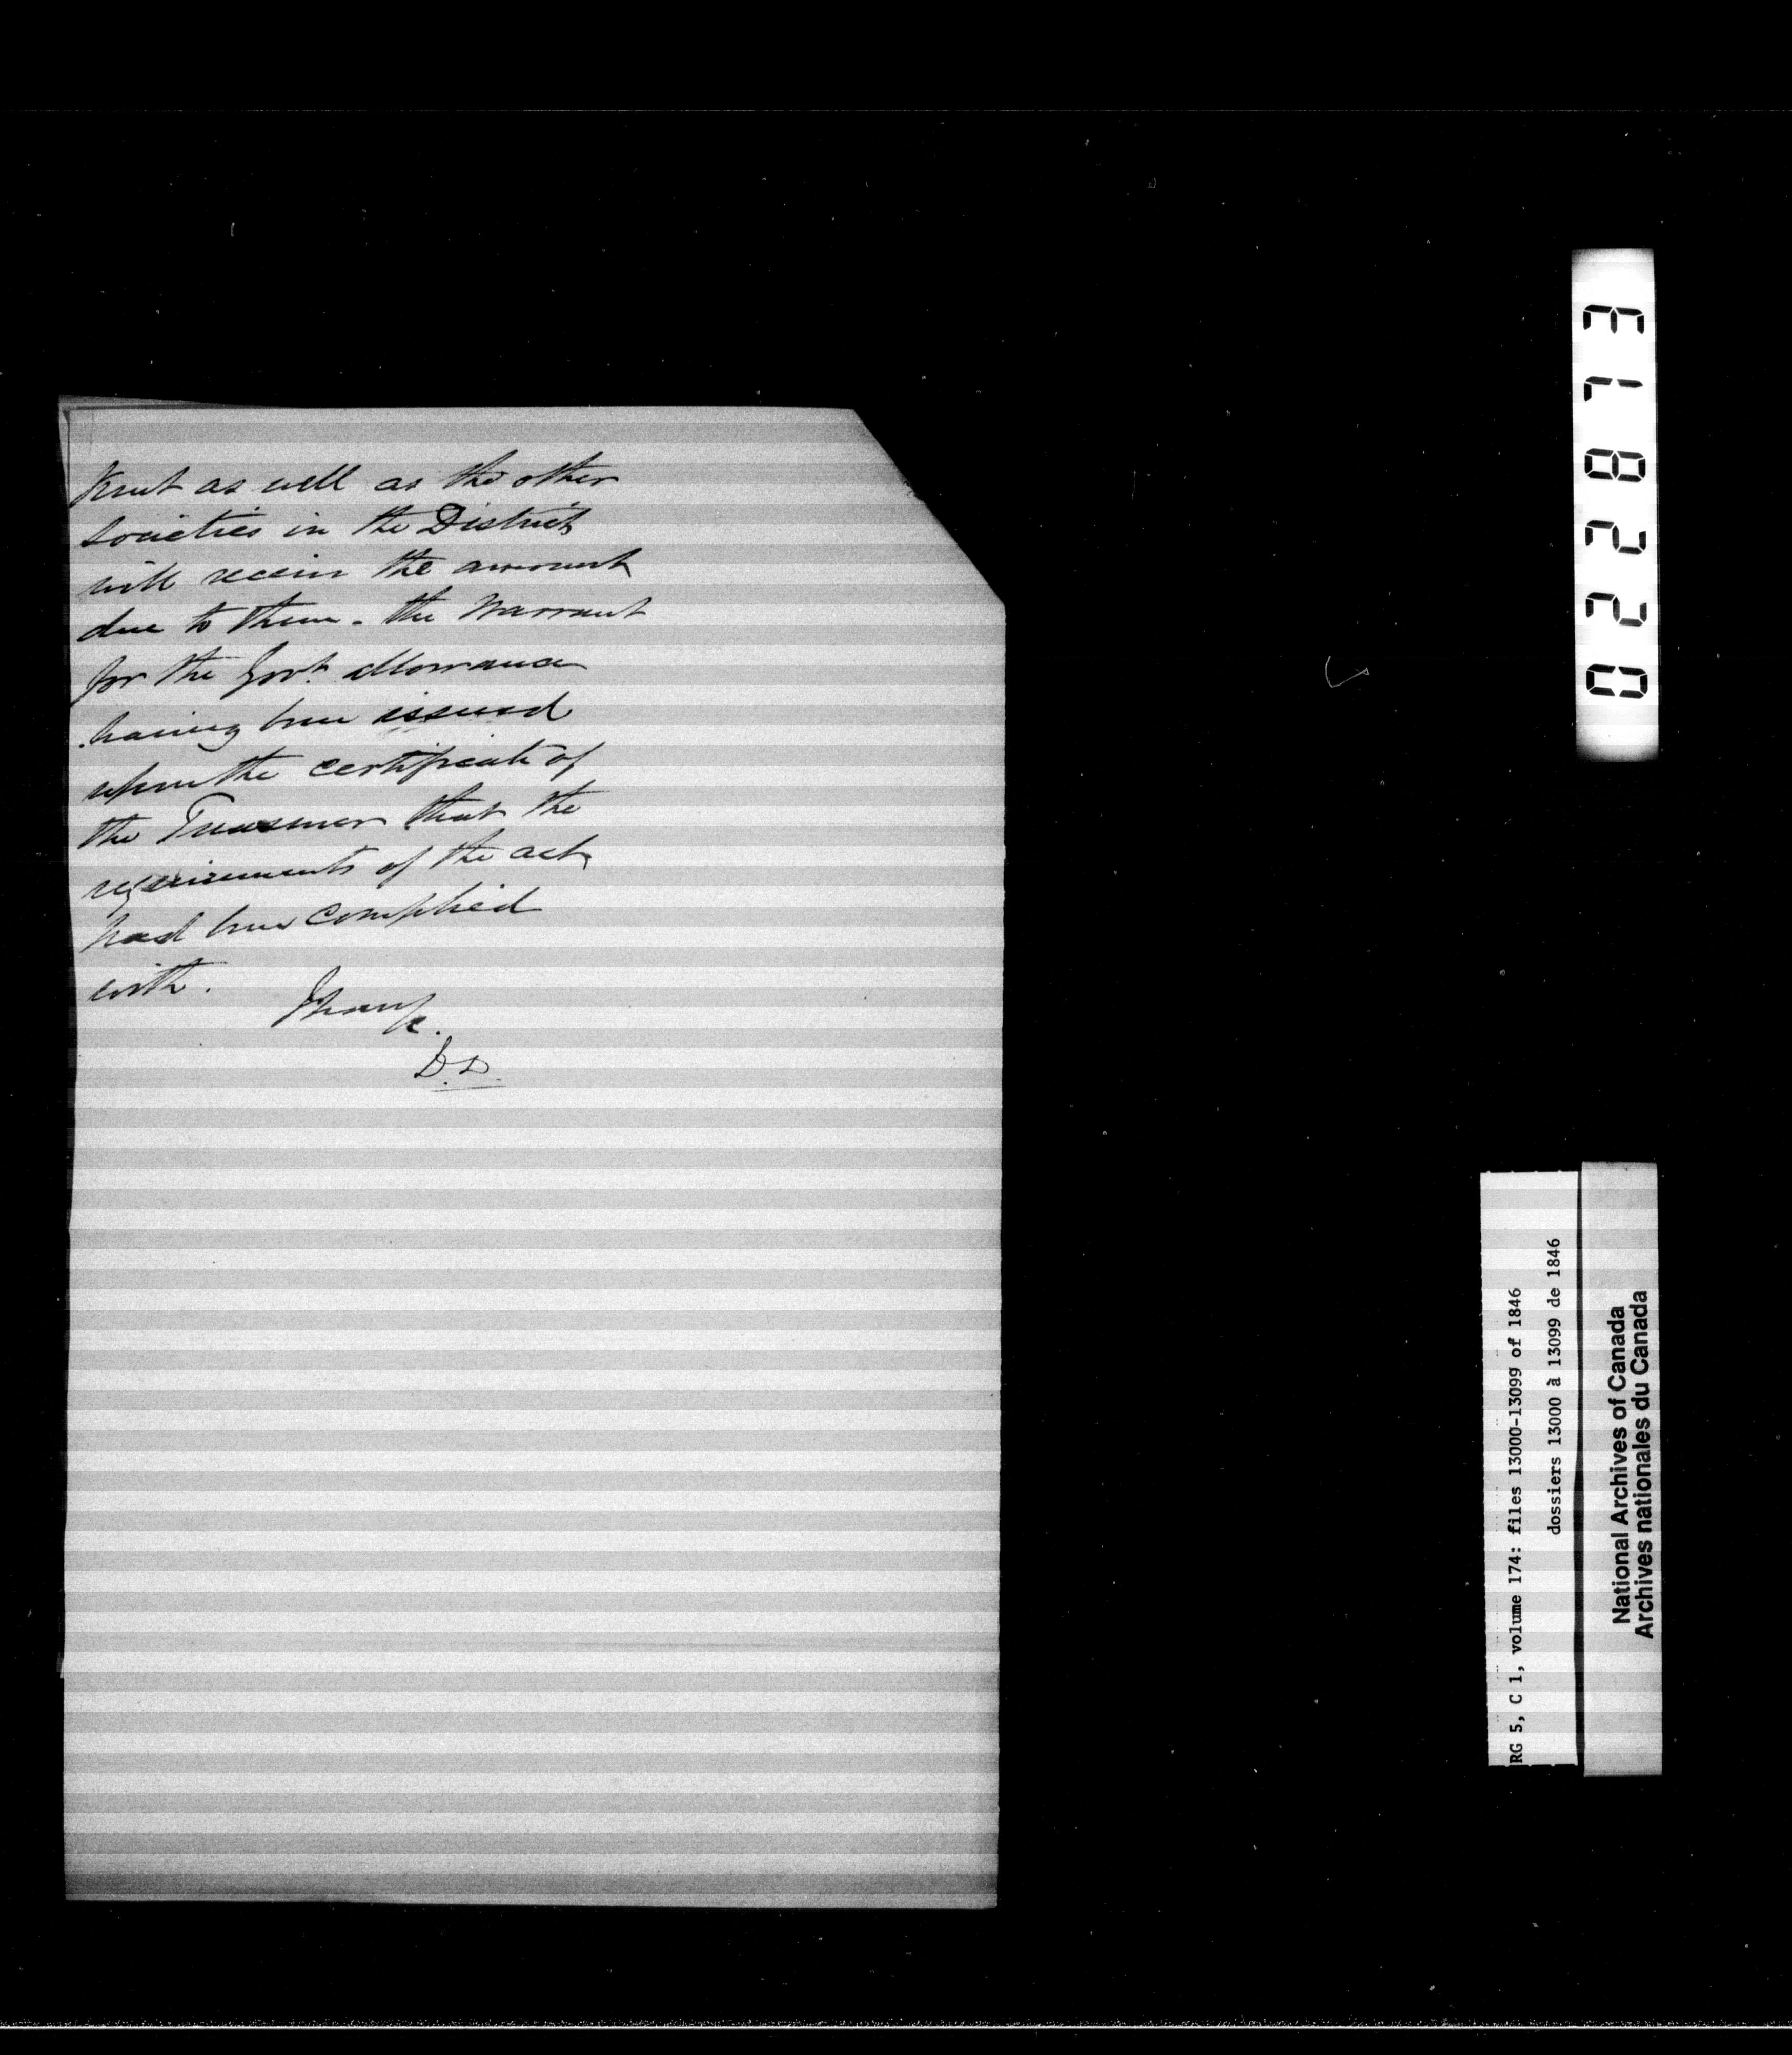 Kent as well as the other
societies in the District
will receive the amount
due to them - the Warrant
for the Govt. allowance
having been issued
upon the certificate of
the Treasurer that the
requirements of the act
had been complied
with.
D.D.
022873
RG 5, C 1, volume 174: files 13000-13099 of 1846
dossiers 13000 à 13099 de 1846
National Archives of Canada
Archives nationales du Canada